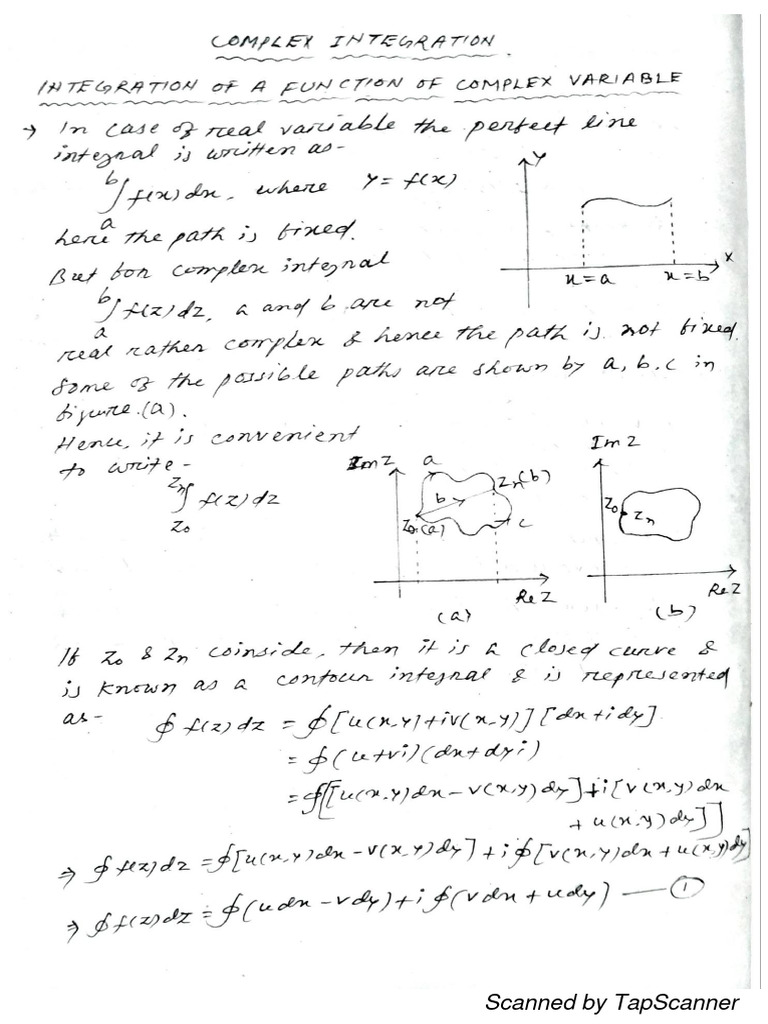 COMPLEX INTEGRATION
INTEGRATION OF A FUNCTION OF COMPLEX VARIABLE
→ In case of real variable the perfect line
integral is written as-
∫ₐᵇ f(x)dx, where y = f(x)
here the path is fixed.
But for complex integral
∫ₐᵇ f(z)dz, a and b are not
real rather complex & hence the path is not fixed.
Some of the possible paths are shown by a, b, c in
figure.(a).
Y
X
x=a
x=b
Hence, it is convenient
to write-
∫ f(z)dz
Zn
Z0
Im Z
a
b
Zn(b)
Z0(a)
c
Re Z
(a)
Im Z
Z0
Zn
Re Z
(b)
If Z0 & Zn coinside, then it is a closed curve &
is known as a contour integral & is represented
as- ∮ f(z)dz = ∮[u(x,y)+iv(x,y)][dx+idy]
= ∮(u+vi)(dx+dyi)
= ∮[[u(x,y)dx-v(x,y)dy]+i[v(x,y)dx
+u(x,y)dy]]
⇒ ∮f(z)dz = ∮[u(x,y)dx-v(x,y)dy]+i∮[v(x,y)dx+u(x,y)dy]
⇒ ∮f(z)dz = ∮(udx-vdy)+i∮(vdx+udy) — ①
Scanned by TapScanner